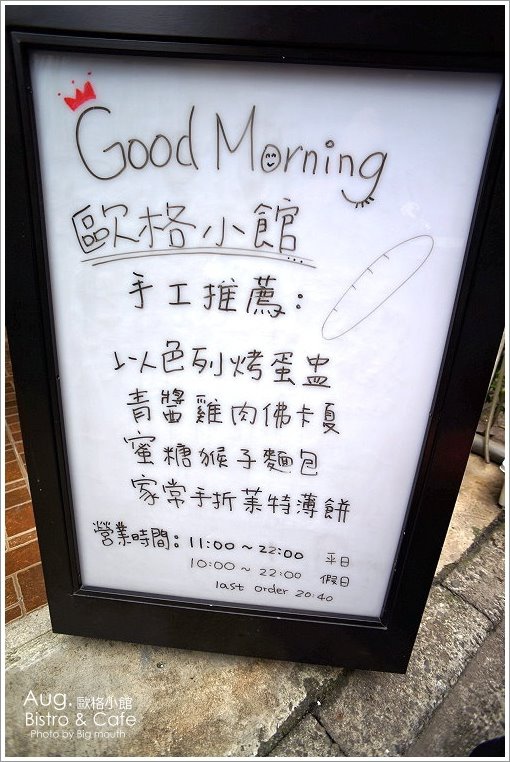 Good Morning
歐格小館...
手工推薦:
以色列烤蛋盅
青醬雞肉佛卡夏
蜜糖猴子麵包
家常手折萊特薄餅
營業時間: 11:00~22:00 平日
10:00~22:00 假日
last order 20:40
Aug. 歐格小館
Bistro & Cafe
Photo by Big mouth